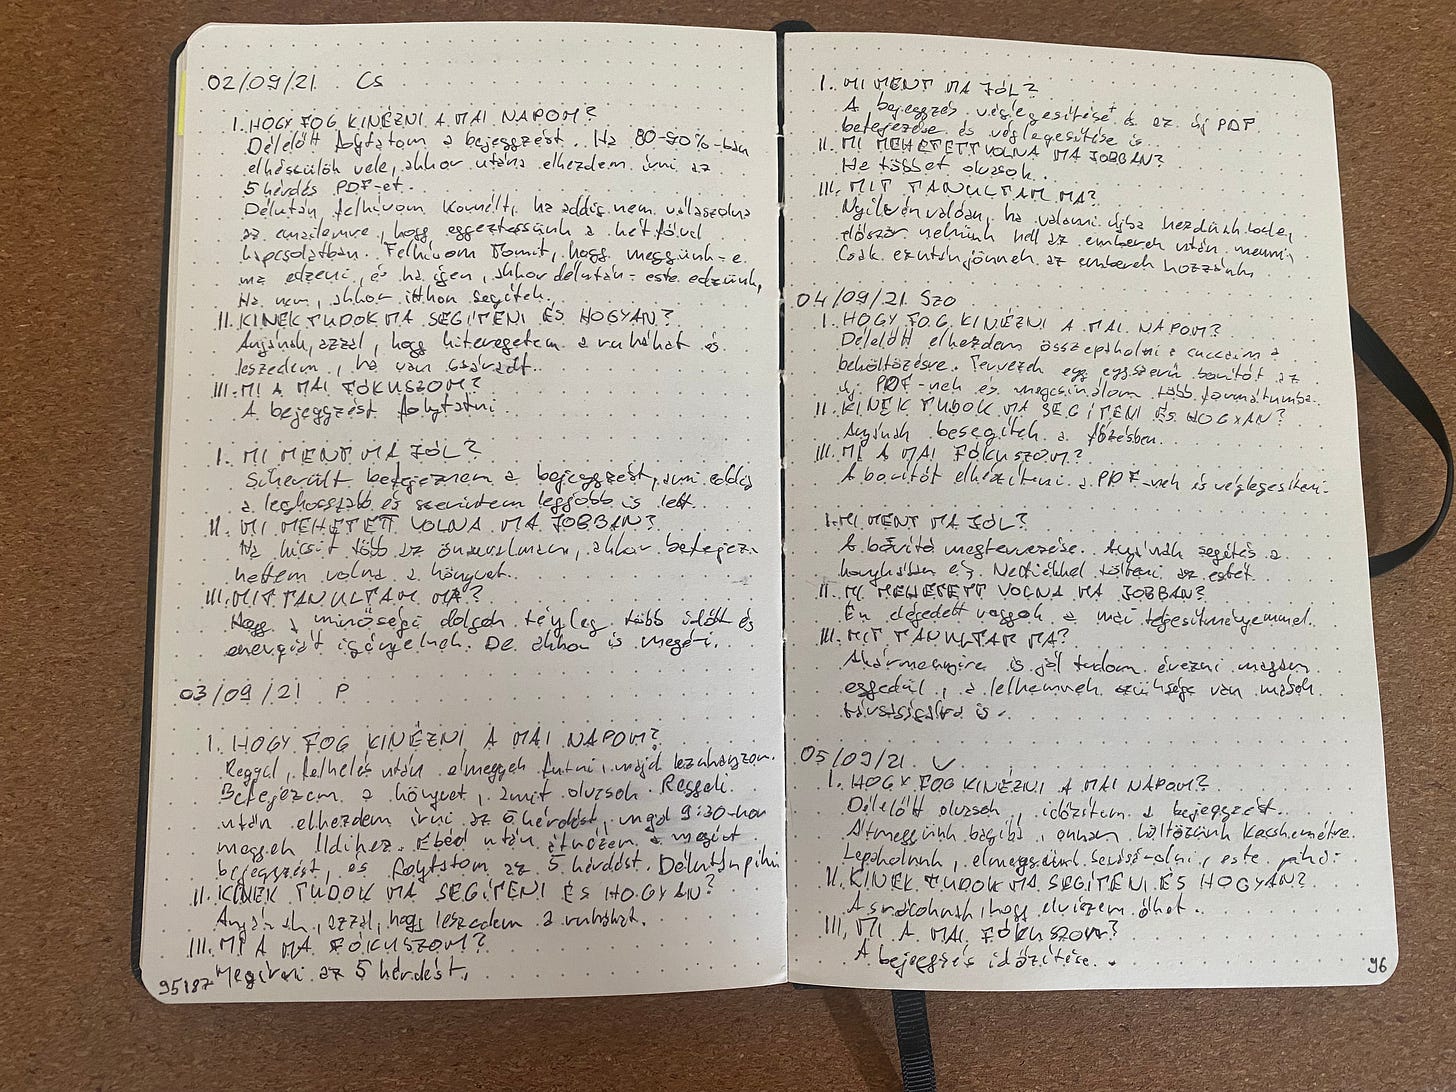 02/09/21 Cs
I. HOGY FOG KINÉZNI A MAI NAPOM?
Délelőtt folytatom a bejegyzést. Ha 80-90%-ban
elkészülök vele, akkor utána elkezdem írni az
5 kérdés PDF-et.
Délután felhívom Kornélt, ha addig nem válaszolna
az emailemre, hogy egyeztessünk a hétfővel
kapcsolatban. Felhívom Tomit, hogy megyünk-e
ma edzeni, és ha igen, akkor délután-este edzünk,
Ha nem, akkor itthon segítek.
II. KINEK TUDOK MA SEGÍTENI ÉS HOGYAN?
Anyának, azzal, hogy kiteregetem a ruhákat és
leszedem, ha van száradt.
III. MI A MAI FÓKUSZOM?
A bejegyzést folytatni
I. MI MENT MA JÓL?
Sikerült befejeznem a bejegyzést, ami eddig
a leghosszabb és szerintem legjobb is lett.
II. MI MEHETETT VOLNA MA JOBBAN?
Ha kicsit több az önuralmam, akkor befejez-
hettem volna a könyvet.
III. MIT TANULTAM MA?
Hogy a minőségi dolgok tényleg több időt és
energiát igényelnek. De akkor is megéri.
03/09/21 P
I. HOGY FOG KINÉZNI A MAI NAPOM?
Reggel, felkelés után elmegyek futni, majd lezuhanyzom.
Befejezem a könyvet, amit olvasok. Reggeli
után elkezdem írni az 5 kérdést, majd 9:30-kor
megyek Ildihez. Ebéd után átnézem a megírt
bejegyzést, és folytatom az 5 kérdést. Délután pihi
II. KINEK TUDOK MA SEGÍTENI ÉS HOGYAN?
Anyának, azzal, hogy leszedem a ruhákat.
III. MI A MA FÓKUSZOM?
Megírni az 5 kérdést.
95187
I. MI MENT MA JÓL?
A bejegyzés véglegesítése és az új PDF
befejezése és véglegesítése is.
II. MI MEHETETT VOLNA MA JOBBAN?
Ha többet olvasok.
III. MIT TANULTAM MA?
Nyilvánvalóan, ha valami újba kezdünk bele,
először nekünk kell az emberek után menni,
Csak ezután jönnek az emberek hozzánk
04/09/21 Szo
I. HOGY FOG KINÉZNI A MAI NAPOM?
Délelőtt elkezdem összepakolni a cuccaim a
beköltözésre. Tervezek egy egyszerű borítót az
új PDF-nek és megcsinálom több formátumba.
II. KINEK TUDOK MA SEGÍTENI ÉS HOGYAN?
Anyának besegítek a főzésben.
III. MI A MAI FÓKUSZOM?
A borítót elkészíteni a PDF-nek és véglegesíteni.
I. MI MENT MA JÓL?
A borító megtervezése. Anyának segítés a
konyhában és tölteni az estét.
II. MI MEHETETT VOLNA MA JOBBAN?
Én elégedett vagyok a mai teljesítményemmel.
III. MIT TANULTAM MA?
Akármennyire is jól tudom érezni magam
egyedül, a lelkemnek szüksége van mások
társaságára is.
05/09/21. V
I. HOGY FOG KINÉZNI A MAI NAPOM?
Délelőtt olvasok, időzítem a bejegyzést.
Átmegyünk onnan költözünk Kecskemétre.
Lepakolunk, elmegyünk este pihi.
II. KINEK TUDOK MA SEGÍTENI ÉS HOGYAN?
A srácoknak, hogy elviszem őket.
III. MI A MAI FÓKUSZOM?
A bejegyzés időzítése.
96